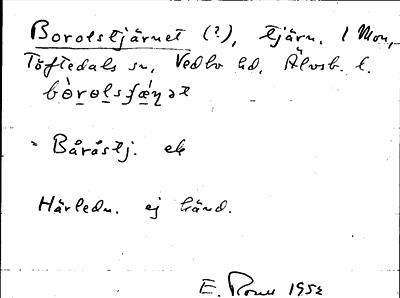 Borolstjärnet (?), tjärn. 1 Mon,
Töftedals sn, Vedbo hd, Älvsb. l.
bòrolsʃæ̀ṇət
= Båråstj. ek
Härledn. ej känd.
E. 1952